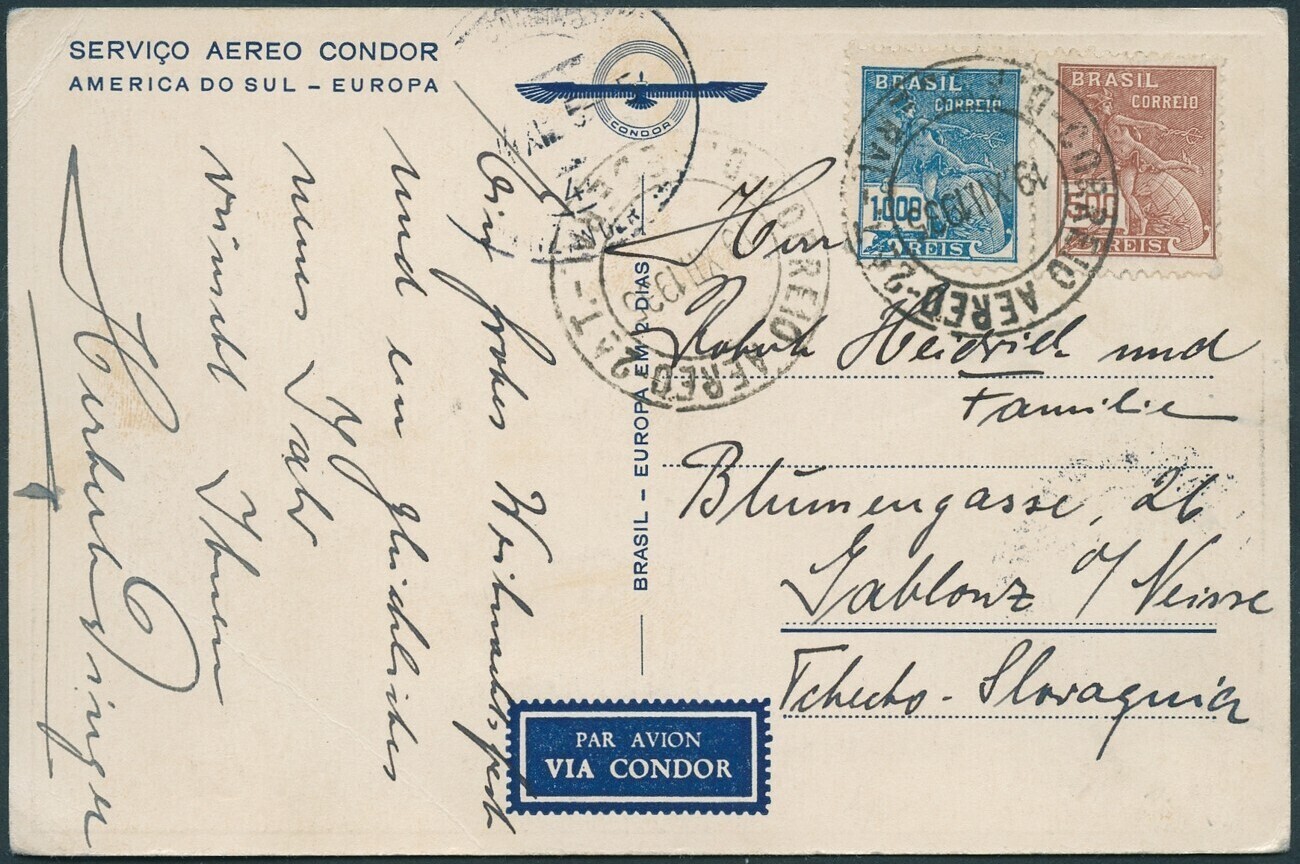 SERVIÇO AEREO CONDOR
AMERICA DO SUL – EUROPA
CONDOR
BRASIL
CORREIO
1.000
REIS
BRASIL
CORREIO
REIS
CORREIO AEREO
CORREIO AEREO
BRASIL – EUROPA EM 2 DIAS
Ein frohes Weihnachtsfest
und ein glückliches
neues Jahr
wünscht Ihnen
Herbert
Herr
Heidrich und
Familie
Blumengasse, 26
Gablonz a/ Neisse
Tchecho-Slovaquia
PAR AVION
VIA CONDOR